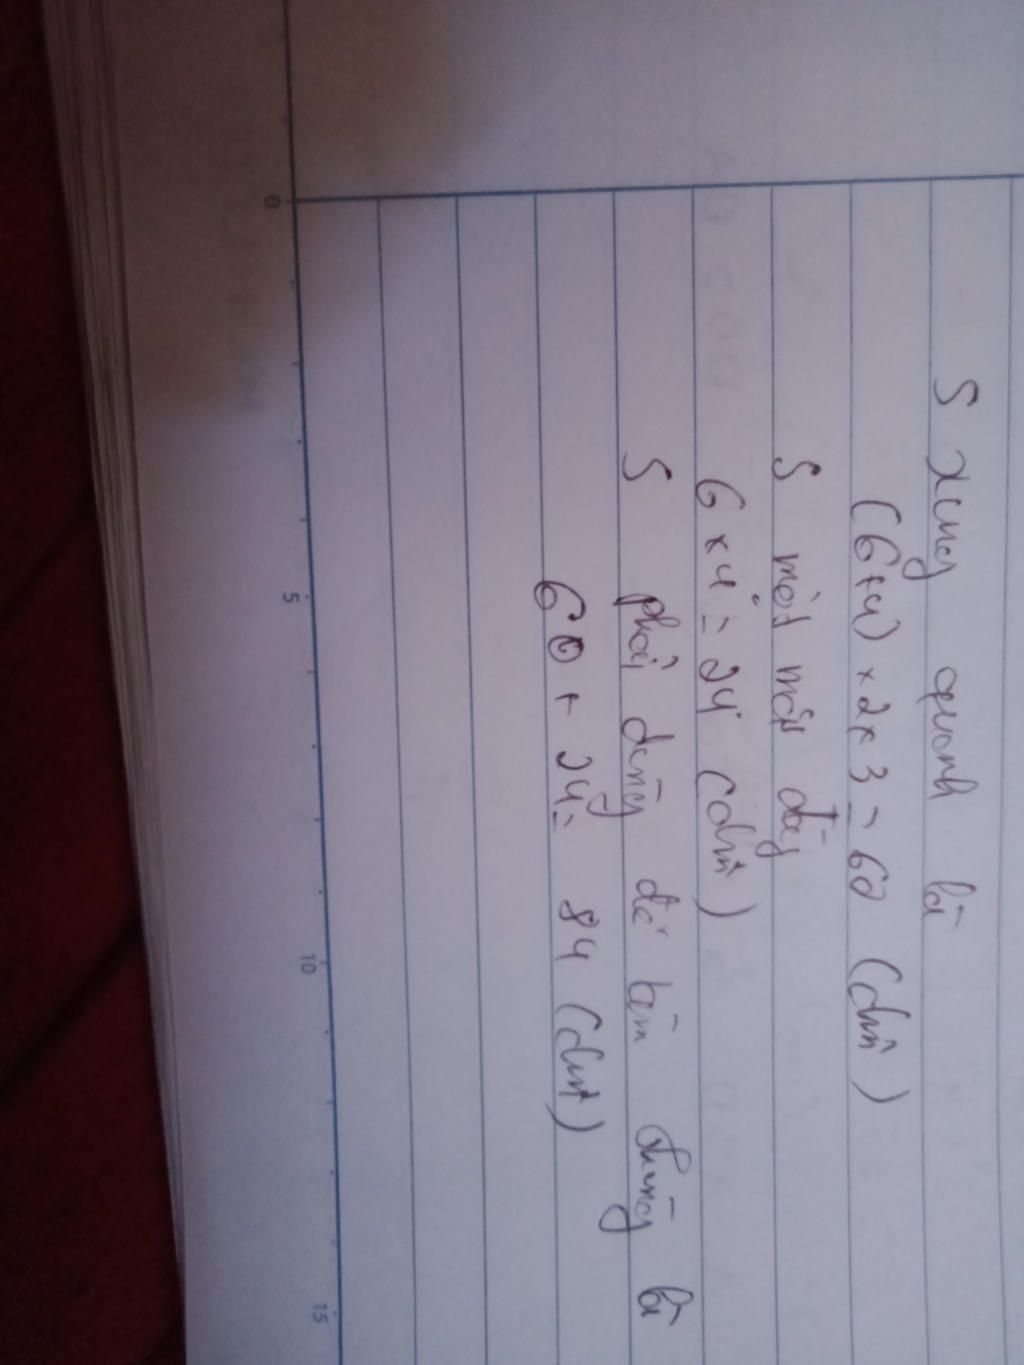 S xung quanh là
(6+4) x 2 x 3 = 60 (dm²)
S một mặt đáy
6 x 4 = 24 (dm²)
S phải dùng để làm thùng là
60 + 24 = 84 (dm²)
0 5 10 15